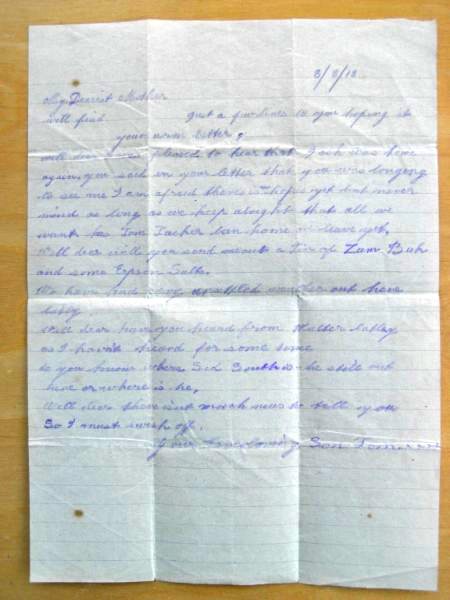 8/9/18
My Dearest Mother
Just a few lines to you hoping it
will find your arm better,
well dear I was pleased to hear that Jack was home
again you said in your letter that you was longing
to see me I am afraid there is no hopes yet but never
mind as long as we keep alright that all we
want has Tom Father ban home on leave yet,
Well dear will you send me out a Tin of Zam Buk
and some Epson Salts.
We have had very unsettled weather out here
lately.
Well dear have you heard from Walter lately
as I havnt heard for some time
do you know where Sid South is he still out
here or where is he,
Well dear there isnt much news to tell you
So I must wish of.
Your Ever loving Son